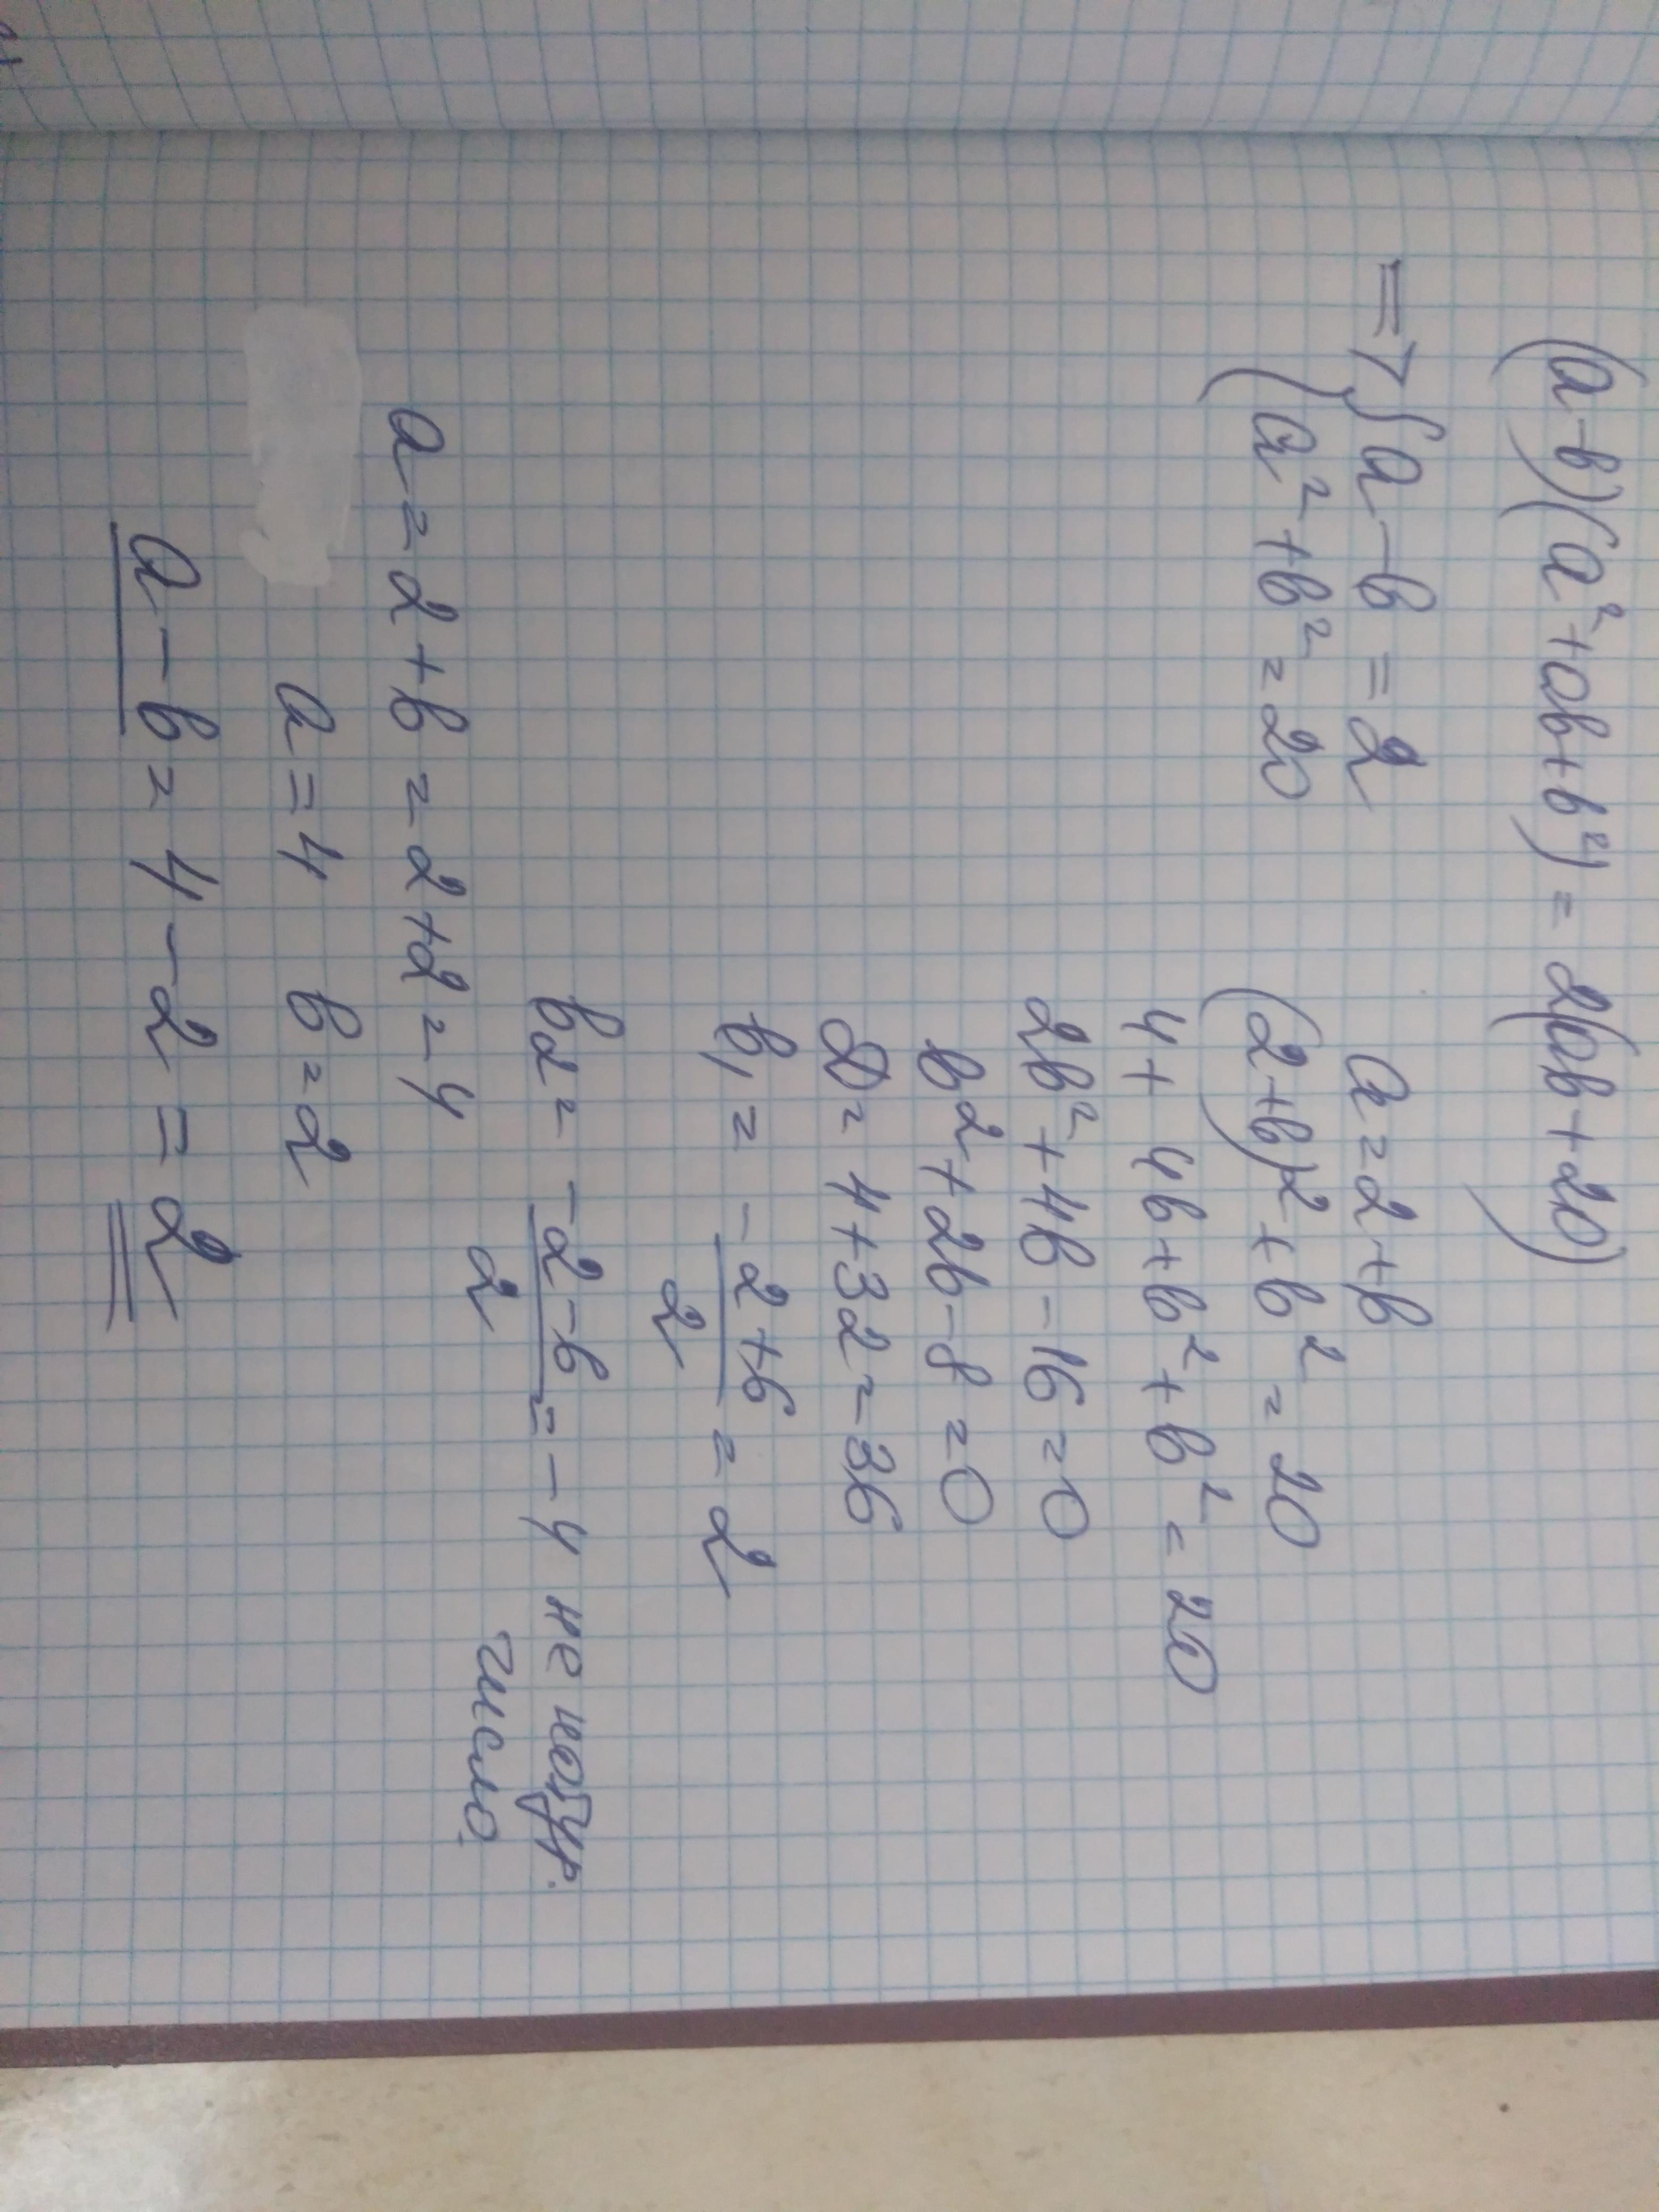 (a-b)(a²+ab+b²) = 2(ab+20)
=> { a-b = 2
a²+b² = 20
a = 2+b
(2+b)²+b² = 20
4+4b+b²+b² = 20
2b²+4b-16 = 0
b²+2b-8 = 0
D = 4+32 = 36
b₁ = (-2+6)/2 = 2
b₂ = (-2-6)/2 = -4 не натур.
число.
a = 2+b = 2+2 = 4
a = 4 b = 2
a-b = 4-2 = 2